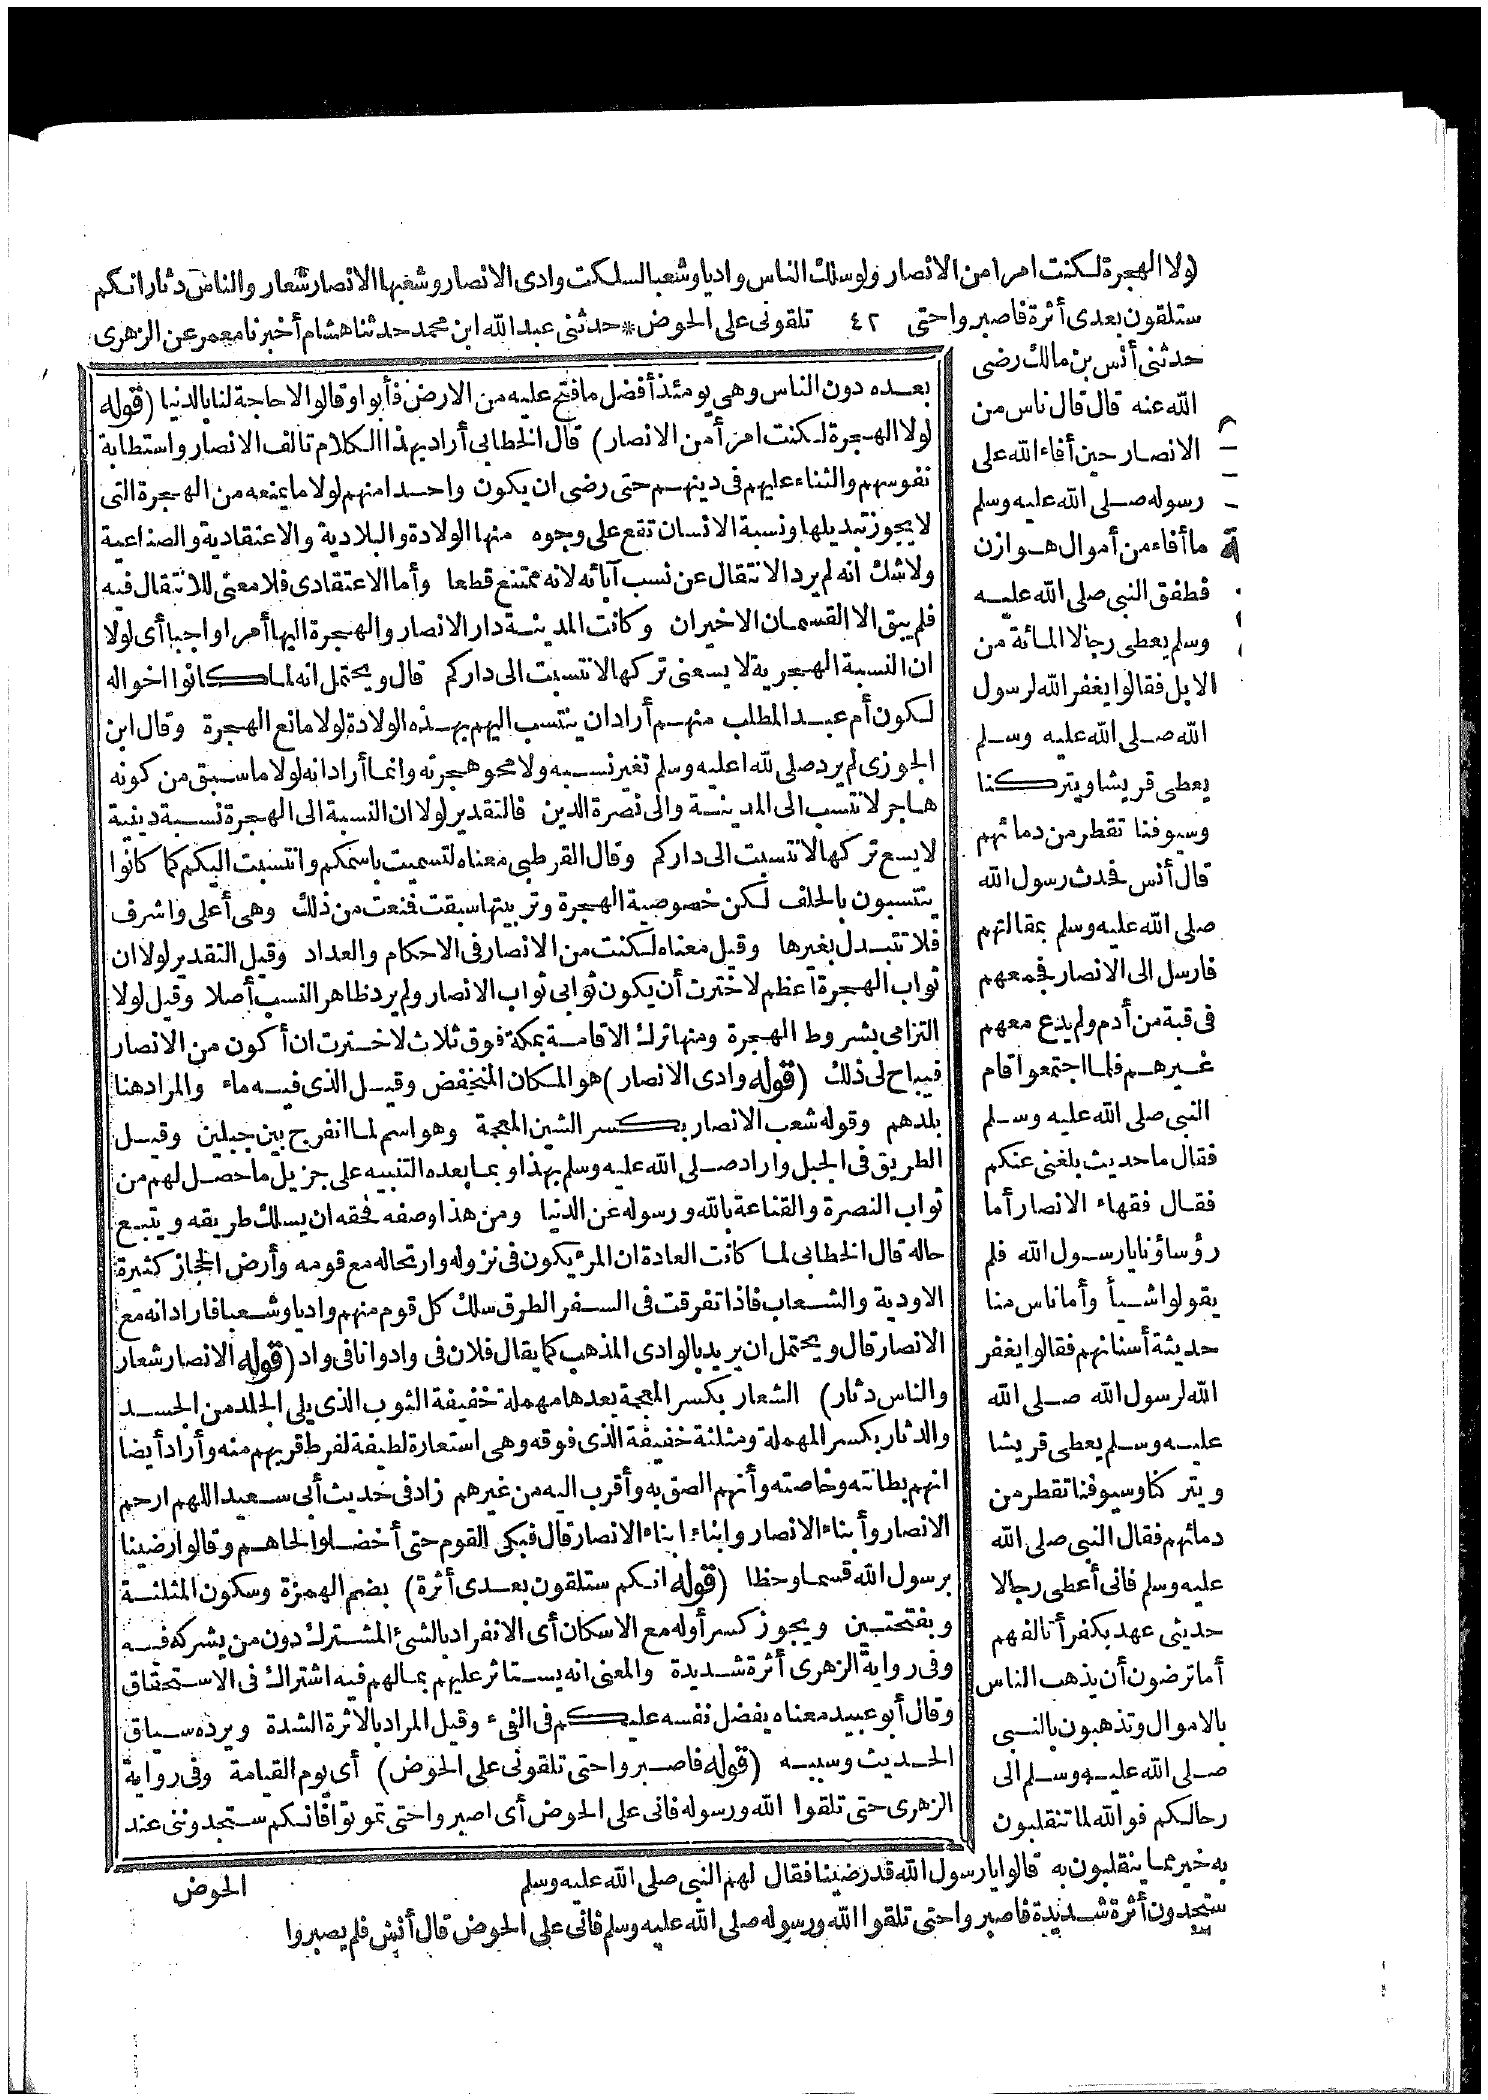 لولا الهجرة لكنت امرا من الانصار ولو سلك الناس واديا وشعبا لسلكت وادى الانصار وشعبها الانصار شعار والناس دثار انكم
ستلقون بعدى أثرة فاصبروا حتى ٤٢ تلقونى على الحوض * حدثنى عبد الله ابن محمد حدثنا هشام أخبرنا معمر عن الزهرى
حدثنى أنس بن مالك رضى
الله عنه قال قال ناس من
الانصار حين أفاء الله على
رسوله صلى الله عليه وسلم
ما أفاء من أموال هوازن
فطفق النبى صلى الله عليه
وسلم يعطى رجالا المائة من
الابل فقالوا يغفر الله لرسول
الله صلى الله عليه وسلم
يعطى قريشا ويتركنا
وسيوفنا تقطر من دمائهم
قال أنس فحدث رسول الله
صلى الله عليه وسلم بمقالتهم
فارسل الى الانصار فجمعهم
فى قبة من أدم ولم يدع معهم
غيرهم فلما اجتمعوا قام
النبى صلى الله عليه وسلم
فقال ما حديث بلغنى عنكم
فقال فقهاء الانصار أما
رؤساؤنا يا رسول الله فلم
يقولوا شيأ وأما ناس منا
حديثة أسنانهم فقالوا يغفر
الله لرسول الله صلى الله
عليه وسلم يعطى قريشا
ويتركنا وسيوفنا تقطر من
دمائهم فقال النبى صلى الله
عليه وسلم فانى أعطى رجالا
حديثى عهد بكفر أتالفهم
أما ترضون أن يذهب الناس
بالاموال وتذهبون بالنبى
صلى الله عليه وسلم الى
رحالكم فوالله لما تنقلبون
به خير مما ينقلبون به قالوا يا رسول الله قد رضينا فقال لهم النبى صلى الله عليه وسلم
ستجدون أثرة شديدة فاصبروا حتى تلقوا الله ورسوله صلى الله عليه وسلم فانى على الحوض قال أنس فلم يصبروا
بعده دون الناس وهى يومئذ أفضل ما فتح عليه من الارض فأبوا وقالوا لا حاجة لنا بالدنيا (قوله
لولا الهجرة لكنت امرأ من الانصار) قال الخطابى أراد بهذا الكلام تالف الانصار واستطابة
نفوسهم والثناء عليهم فى دينهم حتى رضى ان يكون واحدا منهم لولا ما يمنعه من الهجرة التى
لا يجوز تبديلها ونسبة الانسان تقع على وجوه منها الولادة والبلادية والاعتقادية والصناعية
ولا شك انه لم يرد الانتقال عن نسب آبائه لانه ممتنع قطعا وأما الاعتقادى فلا معنى للانتقال فيه
فلم يبق الا القسمان الاخيران وكانت المدينة دار الانصار والهجرة اليها أمرا واجبا أى لولا
ان النسبة الهجرية لا يسعنى تركها لانتسبت الى داركم قال ويحتمل انه لما كانوا اخواله
لكون أم عبد المطلب منهم أراد ان ينتسب اليهم بهذه الولادة لولا مانع الهجرة وقال ابن
الجوزى لم يرد صلى لله اعليه وسلم تغير نسبه ولا محو هجرته وانما أراد انه لولا ما سبق من كونه
هاجر لانتسب الى المدينة والى نصرة الدين فالتقدير لولا ان النسبة الى الهجرة نسبة دينية
لا يسع تركها لانتسبت الى داركم وقال القرطبى معناه لتسميت باسمكم وانتسبت اليكم كما كانوا
ينتسبون بالحلف لكن خصوصية الهجرة وتربيتها سبقت فنعت من ذلك وهى أعلى واشرف
فلا تتبدل بغيرها وقيل معناه لكنت من الانصار فى الاحكام والعداد وقيل التقدير لولا ان
ثواب الهجرة أعظم لاخترت أن يكون ثوابى ثواب الانصار ولم يرد ظاهر النسب أصلا وقيل لولا
التزامى بشروط الهجرة ومنها ترك الاقامة بمكة فوق ثلاث لاخترت ان أكون من الانصار
فيباح لى ذلك (قوله وادى الانصار) هو المكان المنخفض وقيل الذى فيه ماء والمراد هنا
بلدهم وقوله شعب الانصار بكسر الشين المعجمة وهو اسم لما انفرج بين جبلين وقيل
الطريق فى الجبل واراد صلى الله عليه وسلم بهذا وبما بعده التنبيه على جزيل ما حصل لهم من
ثواب النصرة والقناعة بالله ورسوله عن الدنيا ومن هذا وصفه فحقه ان يسلك طريقه ويتبع
حاله قال الخطابى لما كانت العادة ان المرء يكون فى نزوله وارتحاله مع قومه وأرض الحجاز كثيرة
الاودية والشعاب فاذا تفرقت فى السفر الطرق سلك كل قوم منهم واديا وشعبا فاراد انه مع
الانصار قال ويحتمل ان يريد بالوادى المذهب كما يقال فلان فى واد وانا فى واد (قوله الانصار شعار
والناس دثار) الشعار بكسر المعجمة بعدها مهملة خفيفة الثوب الذى يلى الجلد من الجسد
والدثار بكسر المهملة ومثلثة خفيفة الذى فوقه وهى استعارة لطيفة لفرط قربهم منه وأراد أيضا
انهم بطانته وخاصته وأنهم الصق به وأقرب اليه من غيرهم زاد فى حديث أبى سعيد اللهم ارحم
الانصار وأبناء الانصار وابناء ابناء الانصار قال فبكى القوم حتى أخضلوا لحاهم وقالوا رضينا
برسول الله قسما وحظا (قوله انكم ستلقون بعدى أثرة) بضم الهمزة وسكون المثلثة
وبفتحتين ويجوز كسر أوله مع الاسكان أى الانفراد بالشئ المشترك دون من يشركه فيه
وفى رواية الزهرى أثرة شديدة والمعنى انه يستاثر عليهم بما لهم فيه اشتراك فى الاستحقاق
وقال أبو عبيد معناه يفضل نفسه عليكم فى الفىء وقيل المراد بالاثرة الشدة ويرده سياق
الحديث وسببه (قوله فاصبروا حتى تلقونى على الحوض) أى يوم القيامة وفى رواية
الزهرى حتى تلقوا الله ورسوله فانى على الحوض أى اصبروا حتى تموتوا فانكم ستجدوننى عند
الحوض